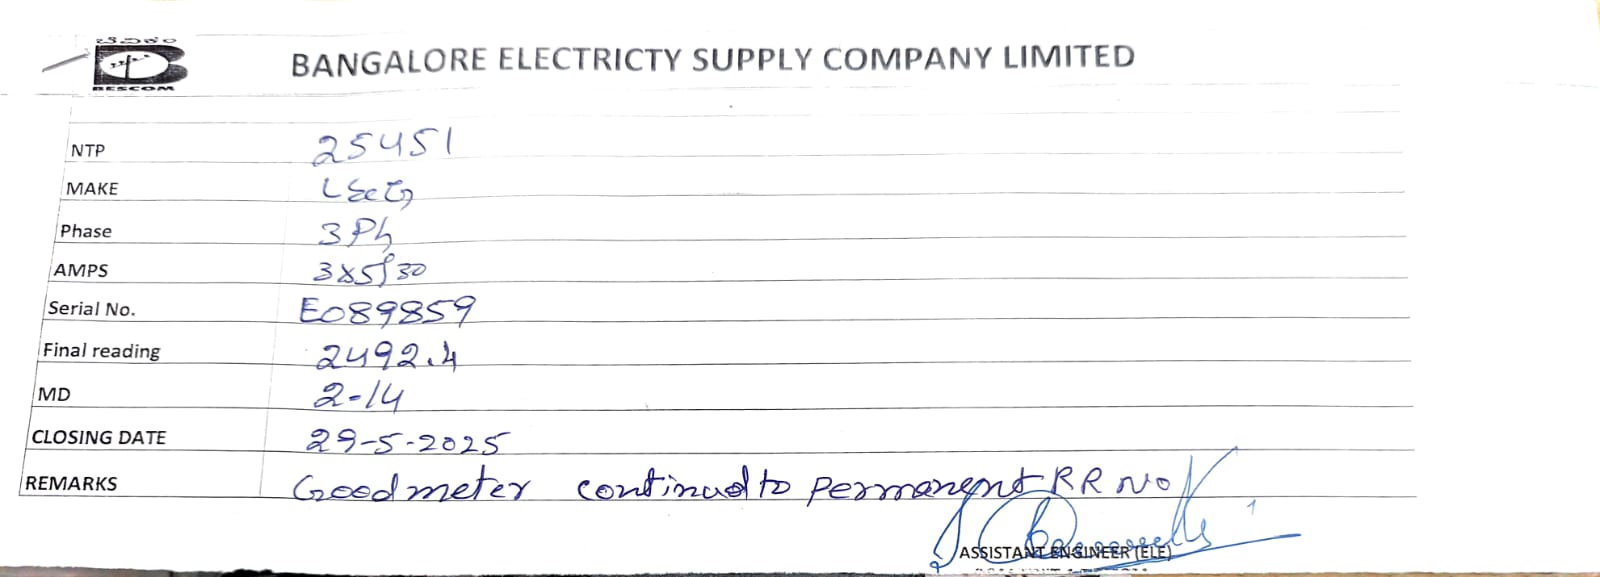 ಬೆವಿಕಂ
BESCOM
BANGALORE ELECTRICTY SUPPLY COMPANY LIMITED
NTP 25451
MAKE
Phase 3Ph
AMPS 3x5/30
Serial No. E089859
Final reading 2492.4
MD 2-14
CLOSING DATE 29-5-2025
REMARKS Good meter continued to permanent RR No
ASSISTANT ENGINEER (ELE)